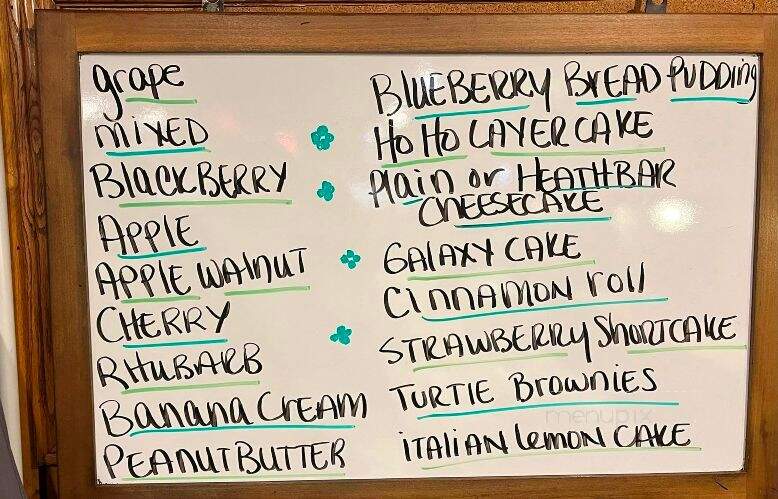 grape
MIXED
BlackBERRY
APPLE
APPLE WAlnuT
CHERRY
RHuBARB
Banana CREAM
PEANUT BUTTER
BluEBERRY BREAD PuDDing
Ho Ho LAYER CAKE
Plain or HEATHBAR
CHEESECAKE
GAlAXY CAKE
CinnAMON roll
STRAWBERRY ShORTCAKE
TURTlE BrOWNiES
iTAliAN lEMON CAKE
menupix